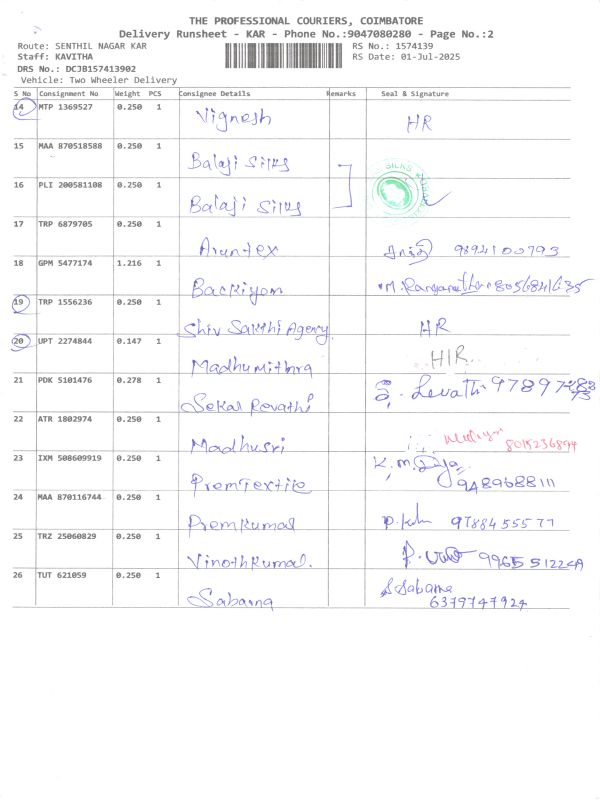 THE PROFESSIONAL COURIERS, COIMBATORE
Delivery Runsheet - KAR - Phone No.:9047080280 - Page No.:2
Route: SENTHIL NAGAR KAR RS No.: 1574139
Staff: KAVITHA RS Date: 01-Jul-2025
DRS No.: DCJB157413902
Vehicle: Two Wheeler Delivery
S No Consignment No Weight PCS Consignee Details Remarks Seal & Signature
14 MTP 1369527 0.250 1 Vignesh HR
15 MAA 870518588 0.250 1 Balaji Silks
16 PLI 200581108 0.250 1 Balaji Silks SILKS
17 TRP 6879705 0.250 1 Aruntex 9894100793
18 GPM 5477174 1.216 1 Backiyam M. Ranganathan 8056841635
19 TRP 1556236 0.250 1 Shiv Sakthi Agency HR
20 UPT 2274844 0.147 1 Madhumithra HR
21 PDK 5101476 0.278 1 Sekar Revathi
22 ATR 1802974 0.250 1 Madhusri 8015236894
23 IXM 508609919 0.250 1 PremTextile K.M. 9489688111
24 MAA 870116744 0.250 1 Premkumar 9788455577
25 TRZ 25060829 0.250 1 Vinothkumar. 9965512249
26 TUT 621059 0.250 1 Sabarna S Sabarna
6379747924